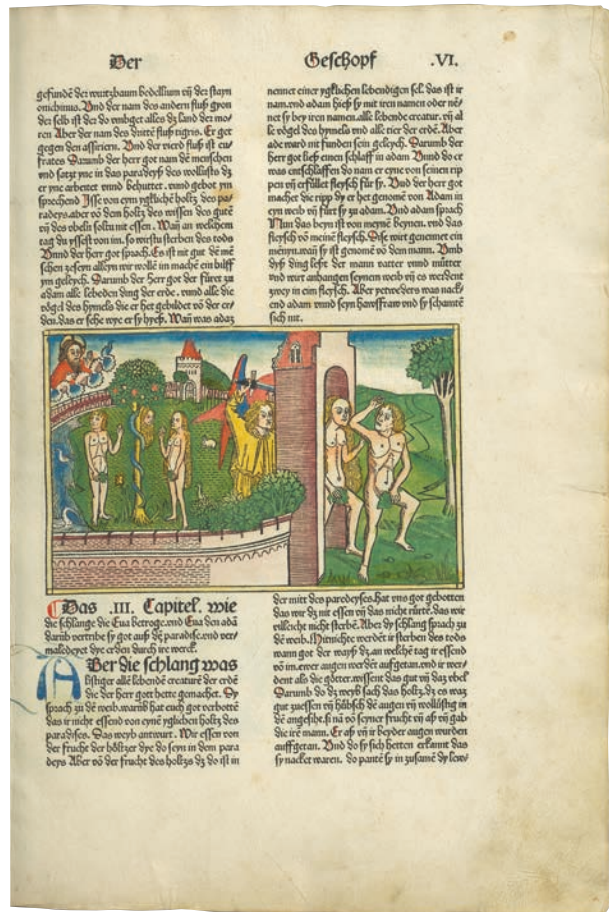 Der Geschopf .VI.
gefundē der wurtzbaum bedellium vn̄ der stayn
onichinus. Vnd der nam des andern fluß gyon
der selb ist der do vmbget alles dz land der mo-
ren Aber der nam des dritte fluß tigris. Er get
gegen den assiriern. Vnd der vierd fluß ist eu-
frates Darumb der herr got nam dē menschen
vnd satzt yne in das paradeyß des wollusts dz
er yne arbeitet vnnd behuttet. vnnd gebot ym
sprechend Isse von eym yglichē holtz des pa-
radeys. aber vō dem holtz des wissen des gutē
vn̄ des vbeln soltu nit essen. Wan̄ an welchem
tag du yssest von im. so wirstu sterben des tods
Vnnd der herr got sprach. Es ist nit gut dē mē
schen zeseyn alleyn wir wollē im machē ein hilff
ym geleych. Darumb der herr got der fūret zu
adam alle lebeden ding der erde. vnnd alle die
vögel des hymels die er het gebildet vō der er-
den. das er sehe wye er sy hyeß. Wan̄ was adaz
nennet einer ygklichen lebendigen sel. das ist ir
nam. vnd adam hieß sy mit iren namen oder nē-
net sy bey iren namen. alle lebende creatur. vn̄ al
le vögel des hymels vnd alle tier der erdē. Aber
ade ward nit funden sein geleych. Darumb der
herr got ließ einen schlaff in adam Vnnd do er
was entschlaffen do nam er eyne von seinen rip
pen vn̄ erfüllet fleysch für sy. Vnd der herr got
machet die ripp dy er het genomē von Adam in
eyn weib vn̄ fürt sy zu adam. Vnd adam sprach
Nun das beyn ist von meynē beynen. vnd das
fleysch vō meinē fleysch. Dise wirt genennet ein
mēnyn. wan̄ sy ist genomē vō dem mann. Vmb
dyß ding leßt der mann vatter vnnd mütter
vnd wirt anhangen seynem weib vn̄ es werdent
zwey in eim fleysch. Aber yetweders was nack-
end adam vnnd seyn hawsfraw vnd sy schamtē
sich nit.
Das .III. Capitel. wie
die schlange die Eua betroge. vnd Eua den adā
darüb vertribe sy got auß dē paradise. vnd ver-
maledeyet dye erden durch ire werck.
ABer die schlang was
listiger allē lebende creaturē der erdē
die der herr gott hette gemachet. Dy
sprach zu dē weib. warüb hat euch got verbottē
das ir nicht essend von eynē yglichen holtz des
paradises. Das weyb antwurt. Wir essen von
der frucht der höltzer dye do seyn in dem para
deys Aber vō der frucht des holtzs dz do ist in
der mitt des paredeyses. hat vns got gebotten
das wir dz nit essen vn̄ das nicht rürtē. das wir
villeicht nicht sterbē. Aber dy schlang sprach zu
dē weib. Mitnichte werdēt ir sterben des tods
wann got der wayß dz an welchē tag ir essend
vō im. ewer augen werdēt aufgetan. vnd ir wer-
dent als die götter. wissent das gut vn̄ daz vbel
Darumb do dz weyb sach das holtz. dz es waz
gut zuessen vn̄ hübsch dē augen vn̄ wollüstig in
dē angesiht. si nā vō seyner frucht vn̄ aß vn̄ gab
die irē mann. Er aß vn̄ ir beyder augen wurden
auffgetan. Vnd do sy sich hetten erkannt das
sy nacket waren. do pantē sy in zusamē dy lew-